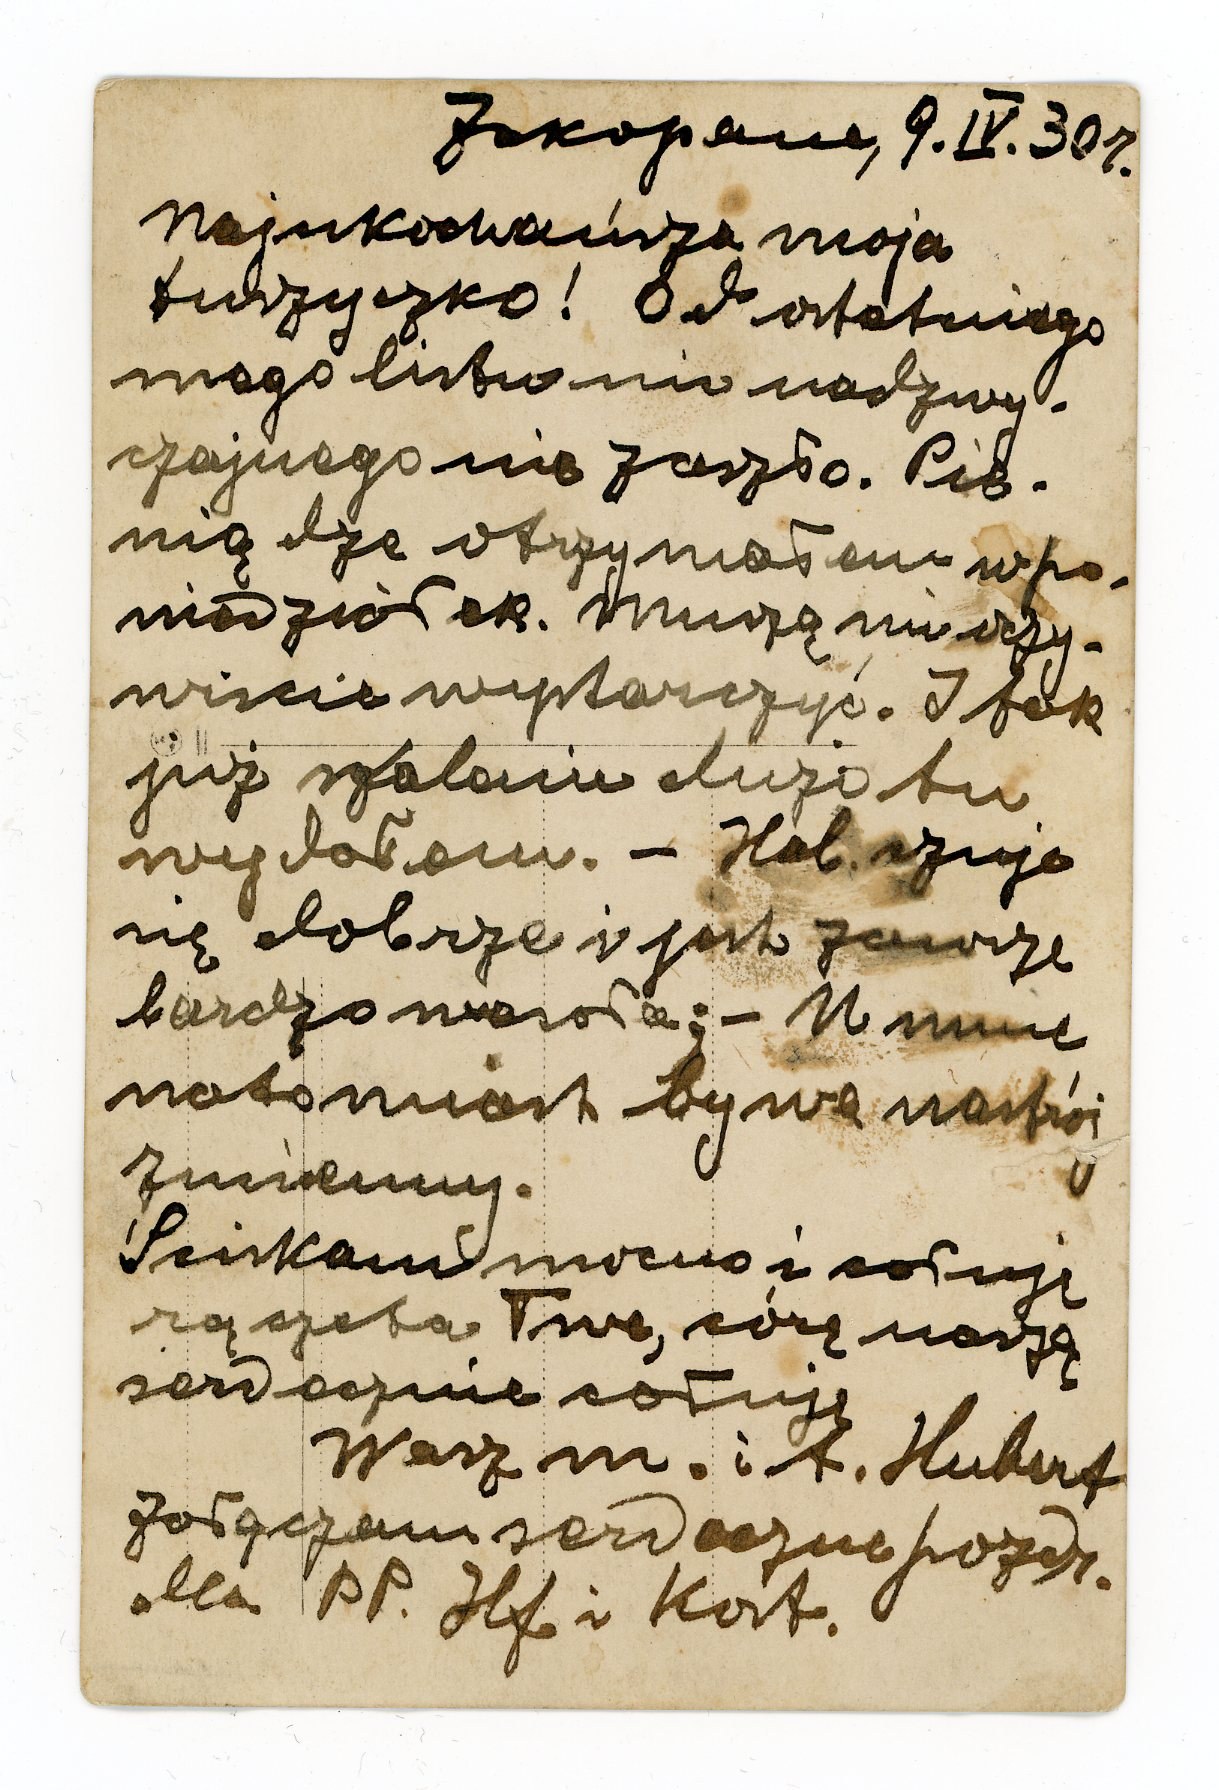 Zakopane, 9.IV.30 r.
Najukochańsza moja
Duszyczko! Od ostatniego
mego listu nic nadzwy-
czajnego nie zaszło. Pie-
niądze otrzymałem w po-
niedziałek. Muszą mi oczy-
wiscie wystarczyć. I tak
już szalenie dużo tu
wydałem. – Hal. czuje
się dobrze i jest zawsze
bardzo wesoła; – U mnie
natomiast bywa nastrój
zmienny.
Ściskam mocno i całuję
rączęta Twe, córę naszą
serdecznie całuję
Wasz m. i t. Hubert
Załączam serdeczne pozdr.
dla PP. Hf. i Kort.